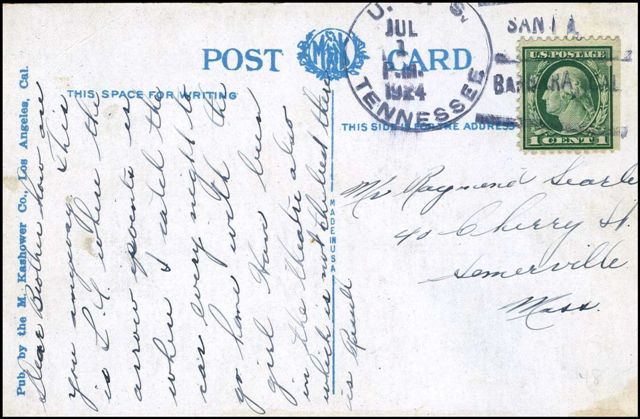 POST CARD
MK
THIS SPACE FOR WRITING
THIS SIDE IS FOR THE ADDRESS
Pub. by the M. Kashower Co., Los Angeles, Cal.
MADE IN USA
U. S. S.
JUL
1
P.M.
1924
TENNESSEE
SANTA
BARBARA, CAL.
U.S. POSTAGE
1 CENT 1
Dear Brother how are
you anyway. This
is L. A. where the
arrow points is
where I catch the
car every night to
go home with the
girl Have been
in the theatre also
which is not the best there
is Russell
Mr Raymond Searle
40 Cherry St.
Somerville
Mass.
48